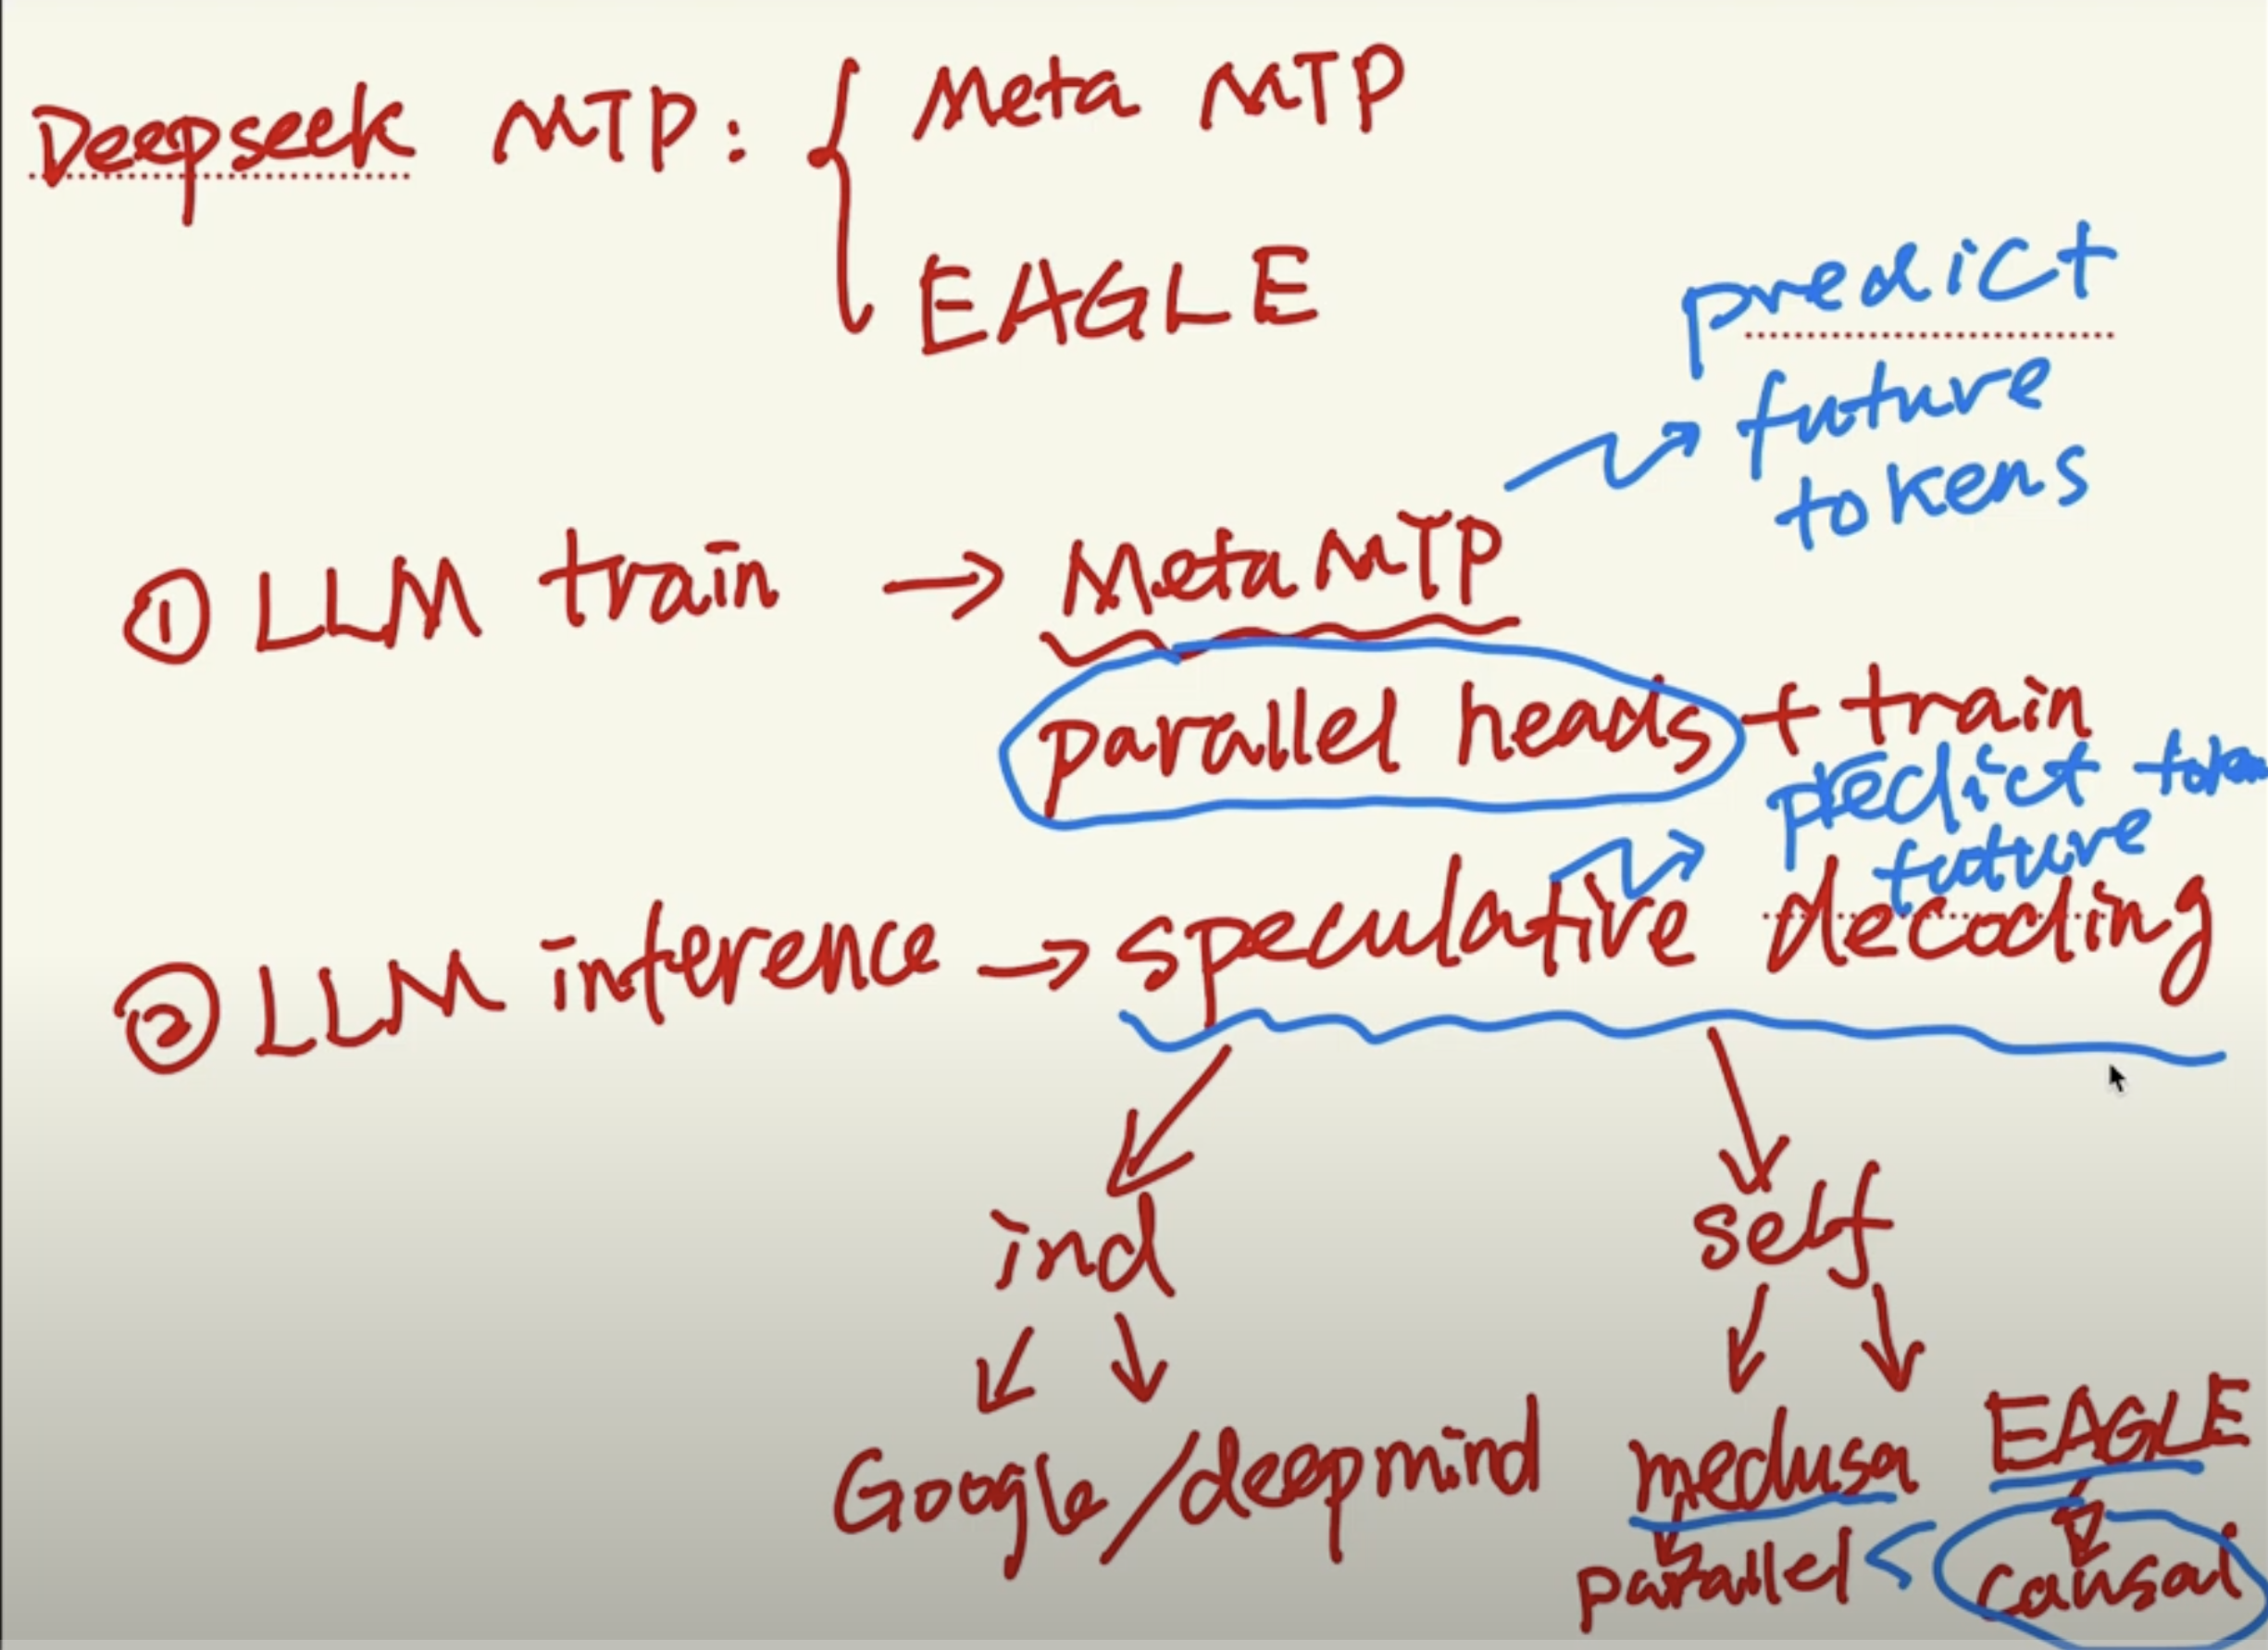 Deepseek MTP: { Meta MTP
EAGLE
predict
future
tokens
① LLM train → Meta MTP
parallel heads + train
predict token
future
② LLM inference → speculative decoding
ind
self
Google/deepmind
medusa
EAGLE
parallel < causal